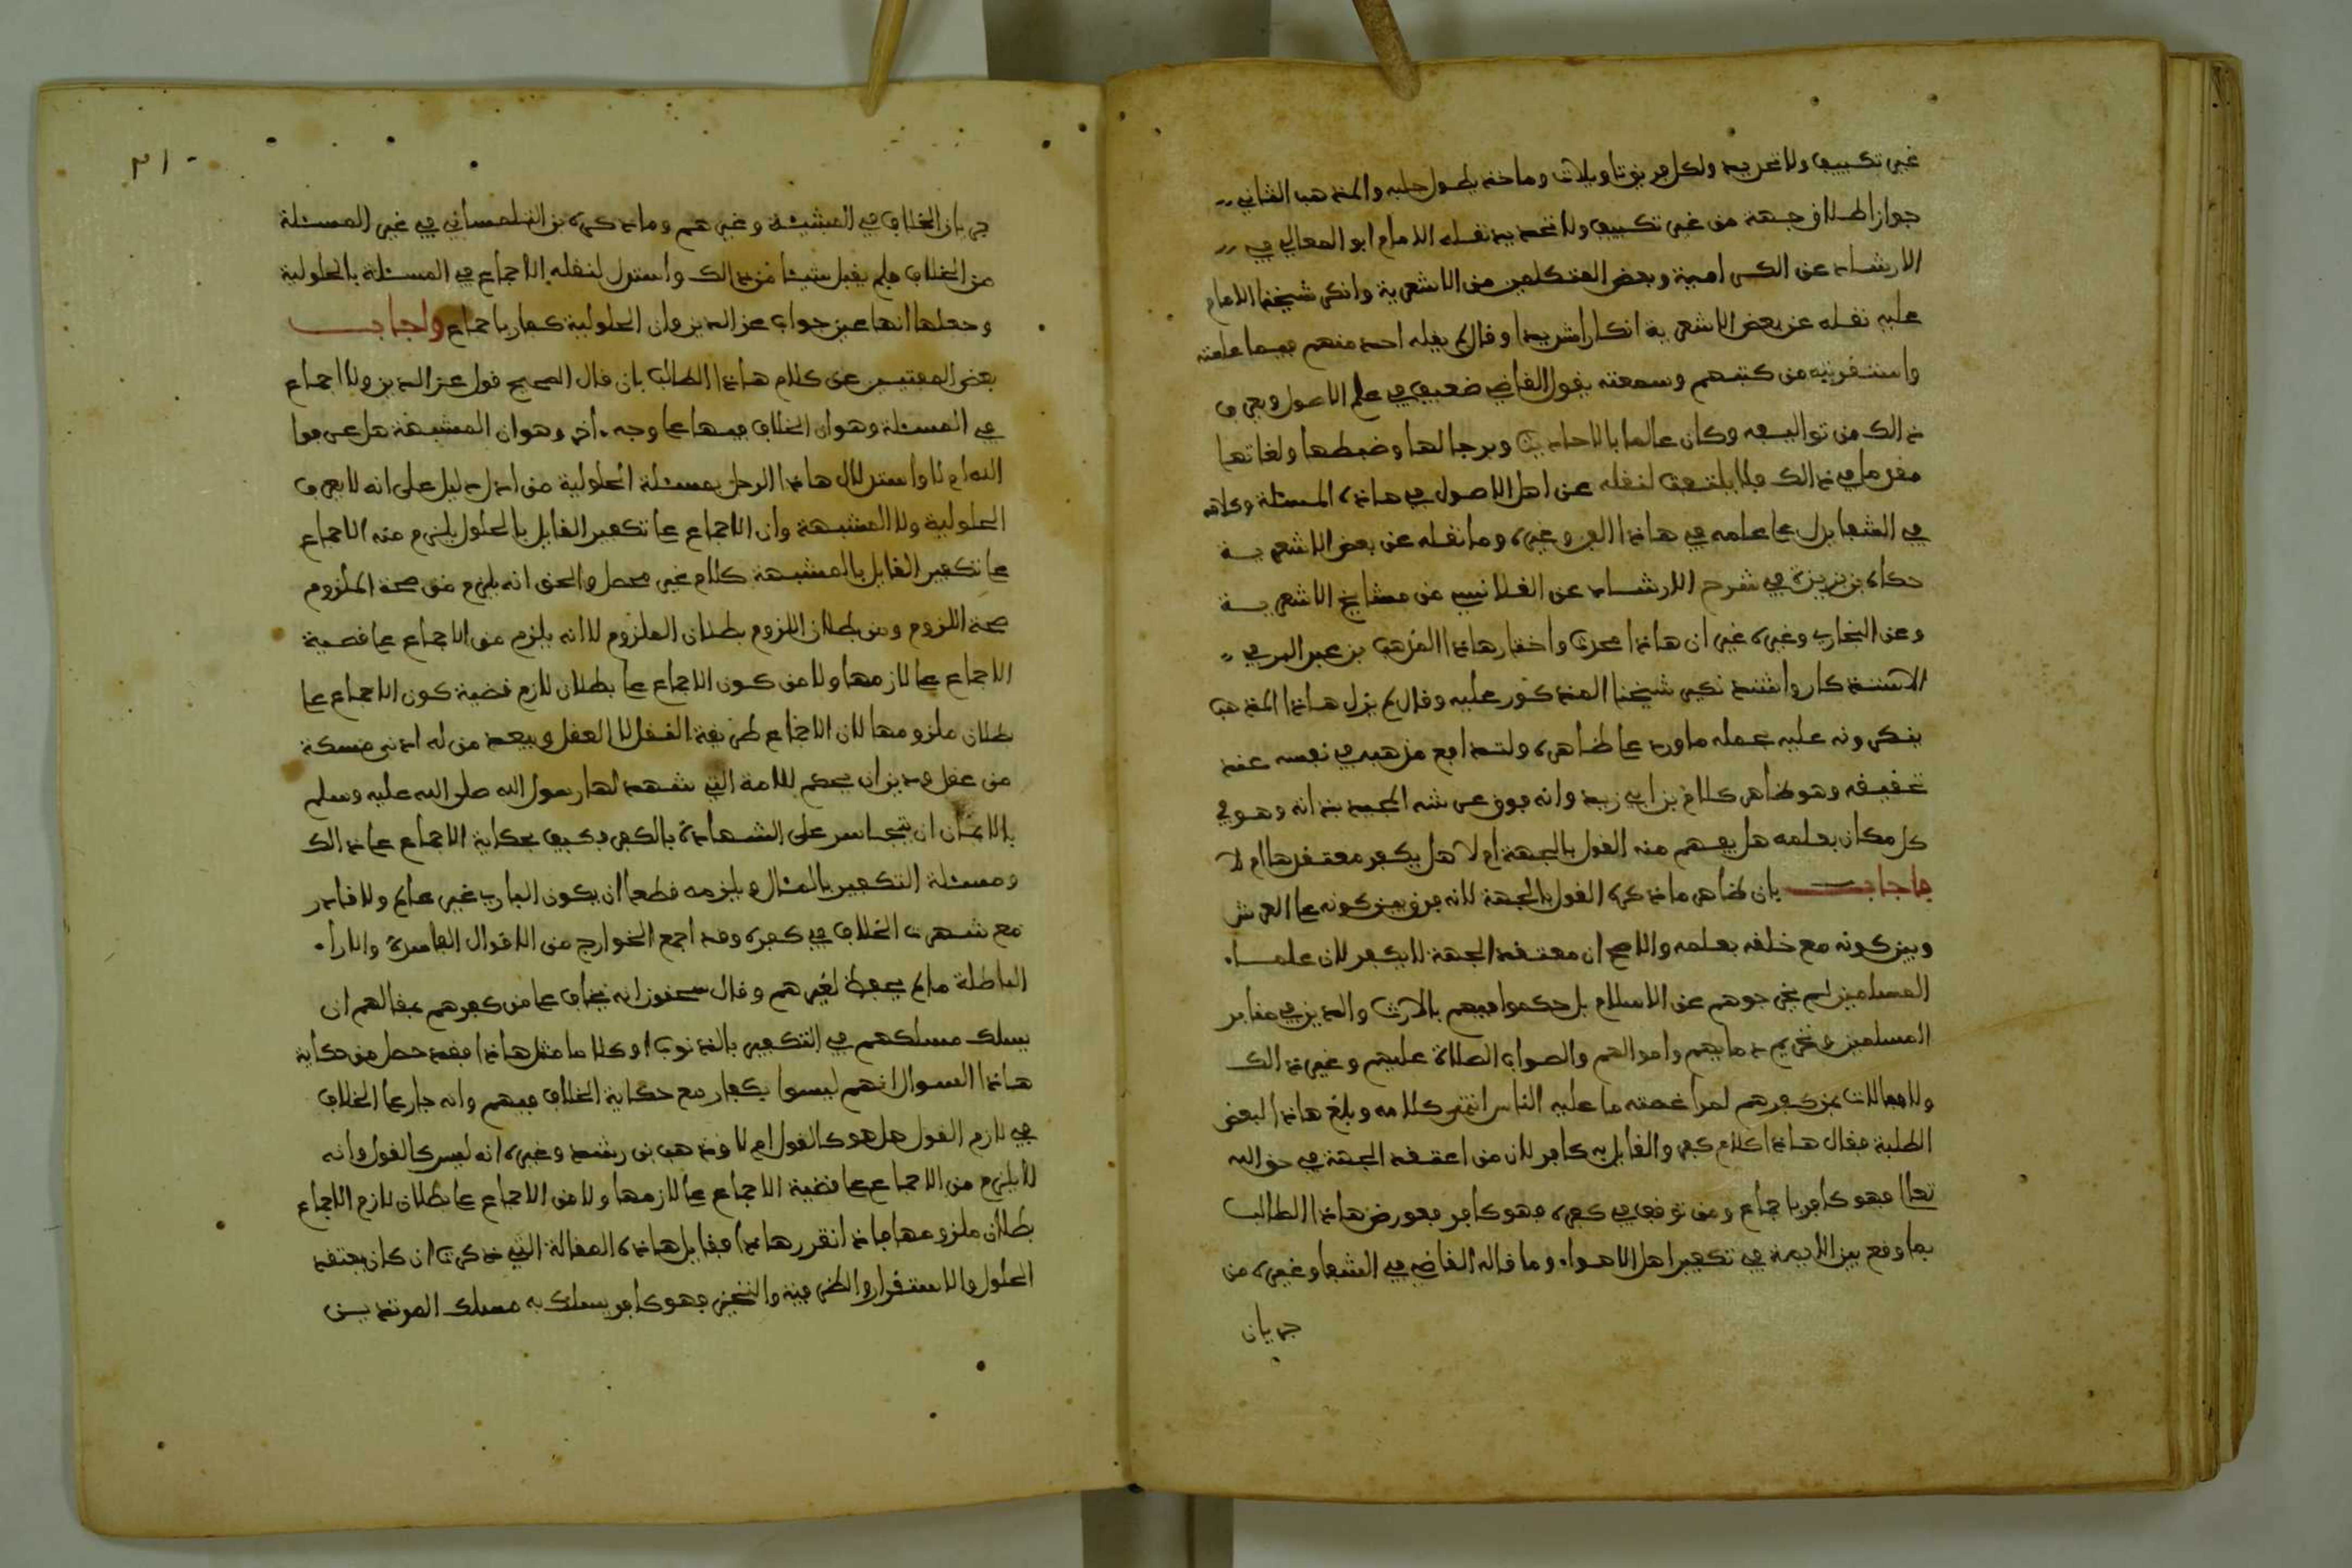 غير تكييف ولا تحديد ولكل فريق تاويلات وماخذ يطول جلبه والمذهب الثاني
جواز اطلاق جهة من غير تكييف ولا تحديد نقله الامام ابو المعالي في
الارشاد عن الكرامية وبعض المتكلمين من الاشعرية وانكر شيخنا الامام
عليه نقله عن بعض الاشعرية انكارا شديدا وقال لم يقله احد منهم فيما علمته
واستقريته من كتبهم وسمعته يقول القاضي ضعيف في علم الاصول ويعرف
ذالك من تواليفه وكان عالما بالاحاديث وبرجالها وضبطها ولغاتها
مقدما في ذالك فلا يلتفت لنقله عن اهل الاصول في هاذه المسئلة وكلامه
في الشفا يدل على علمه في هاذا الفن وغيره وما نقله عن بعض الاشعرية
حكاه بن بزيزة في شرح الارشاد عن القلانسي من مشايخ الاشعرية
وعن البخاري وغيره غير ان هاذا محدث واختار هاذا المذهب بن عبد البر في
الاستذكار واشتد نكير شيخنا المذكور عليه وقال لم يزل هاذا المذهب
ينكرونه عليه بحمله ما ورد على ظاهره ولتدافع مذهبه في نفسه عند
تحقيقه وهو ظاهر كلام بن ابي زيد وانه فوق عرشه المجيد بذاته وهو في
كل مكان بعلمه هل يفهم منه القول بالجهة ام لا هل يكفر معتقدها ام لا
فاجاب بان ظاهر ما ذكره القول بالجهة لانه فرق بين كونه على العرش
وبين كونه مع خلقه بعلمه والاصح ان معتقد الجهة لا يكفر لان علماء
المسلمين لم يخرجوهم عن الاسلام بل حكموا فيهم بالارث والدفن في مقابر
المسلمين وتحريم دمايهم واموالهم والصواب الصلاة عليهم وغير ذالك
ولا مبالات بمن كفرهم لمراغمته ما عليه الناس انتهى كلامه وبلغ هاذا لبعض
الطلبة فقال هاذا كلام كفر والقايل به كافر لان من اعتقد الجهة في حق الله
تعالى فهو كافر باجماع ومن توقف في كفره فهو كافر فعورض هاذا الطالب
بما وقع بين الايمة في تكفير اهل الاهواء وما قاله القاضي في الشفا وغيره من
جريان
٢١٠
جريان الخلاف في المشبهة وغيرهم وما ذكره بن التلمساني في غير المسئلة
من الخلاف فلم يقبل شيئا من ذالك واستدل لنقله الاجماع في المسئلة بالحلولية
وجعلها انها عين جواب عز الدين وان الحلولية كفار باجماع واجاب
بعض المفتيين عن كلام هاذا الطالب بان قال الصحيح قول عز الدين ولا اجماع
في المسئلة وهو ان الخلاف فيها على وجه ءاخر وهو ان المشبهة هل عرفوا
الله ام لا واستدلال هاذا الرجل بمسئلة الحلولية من ادل دليل على انه لا يعرف
الحلولية ولا المشبهة وان الاجماع على تكفير القايل بالحلول يلزم منه الاجماع
على تكفير القايل بالمشبهة كلام غير محصل والحق انه يلزم من صحة الملزوم
صحة اللزوم ومن بطلان اللزوم بطلان الملزوم لا انه يلزم من الاجماع على قضية
الاجماع على لازمها ولا من كون الاجماع على بطلان لازم قضية كون الاجماع على
بطلان ملزومها لان الاجماع طريقة النقل لا العقل ويبعد من له ادنى مسكة
من عقل ودين ان يحكم للامة التي شهد لها رسول الله صلى الله عليه وسلم
بالايمان ان يتجاسر على الشهادة بالكفر فكيف بحكاية الاجماع على ذالك
ومسئلة التكفير بالمئال ويلزمه قطعا ان يكون الباري غير عالم ولا قادر
مع شهرت الخلاف في كفره وقد اجمع الخوارج من الاقوال الفاسدة والاراء
الباطلة ما لم يحفظ لغيرهم وقال سحنون انه يخاف على من كفرهم بمقالهم ان
يسلك مسلكهم في التكفير بالذنوب او كلاما مثل هاذا فقد حصل من حكاية
هاذا السوال انهم ليسوا بكفار مع حكاية الخلاف فيهم وانه جار على الخلاف
في لازم القول هل هو كالقول ام لا ومذهب بن رشد وغيره انه ليس كالقول وانه
لا يلزم من الاجماع على قضية الاجماع على لازمها ولا من الاجماع على بطلان لازم الاجماع
بطلان ملزومها فاذا تقرر هاذا فقايل هاذه المقالة التي ذكرت ان كان يعتقد
الحلول والاستقرار والظرفية والتحيز فهو كافر يسلك به مسلك المرتدين